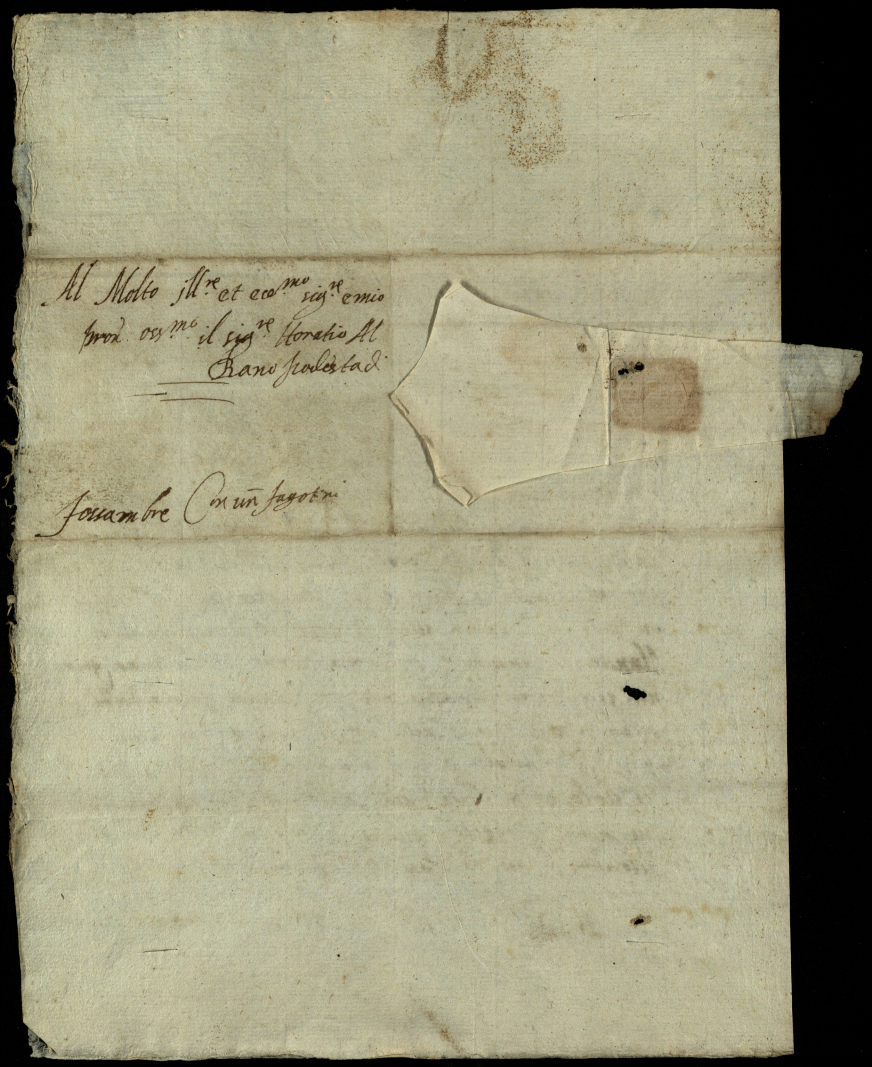 Al Molto Ill.re et ecc.mo sig.re e mio
pron. oss.mo il sig.re Horatio Al
Bano podesta di
Fossambre Con un fagotti